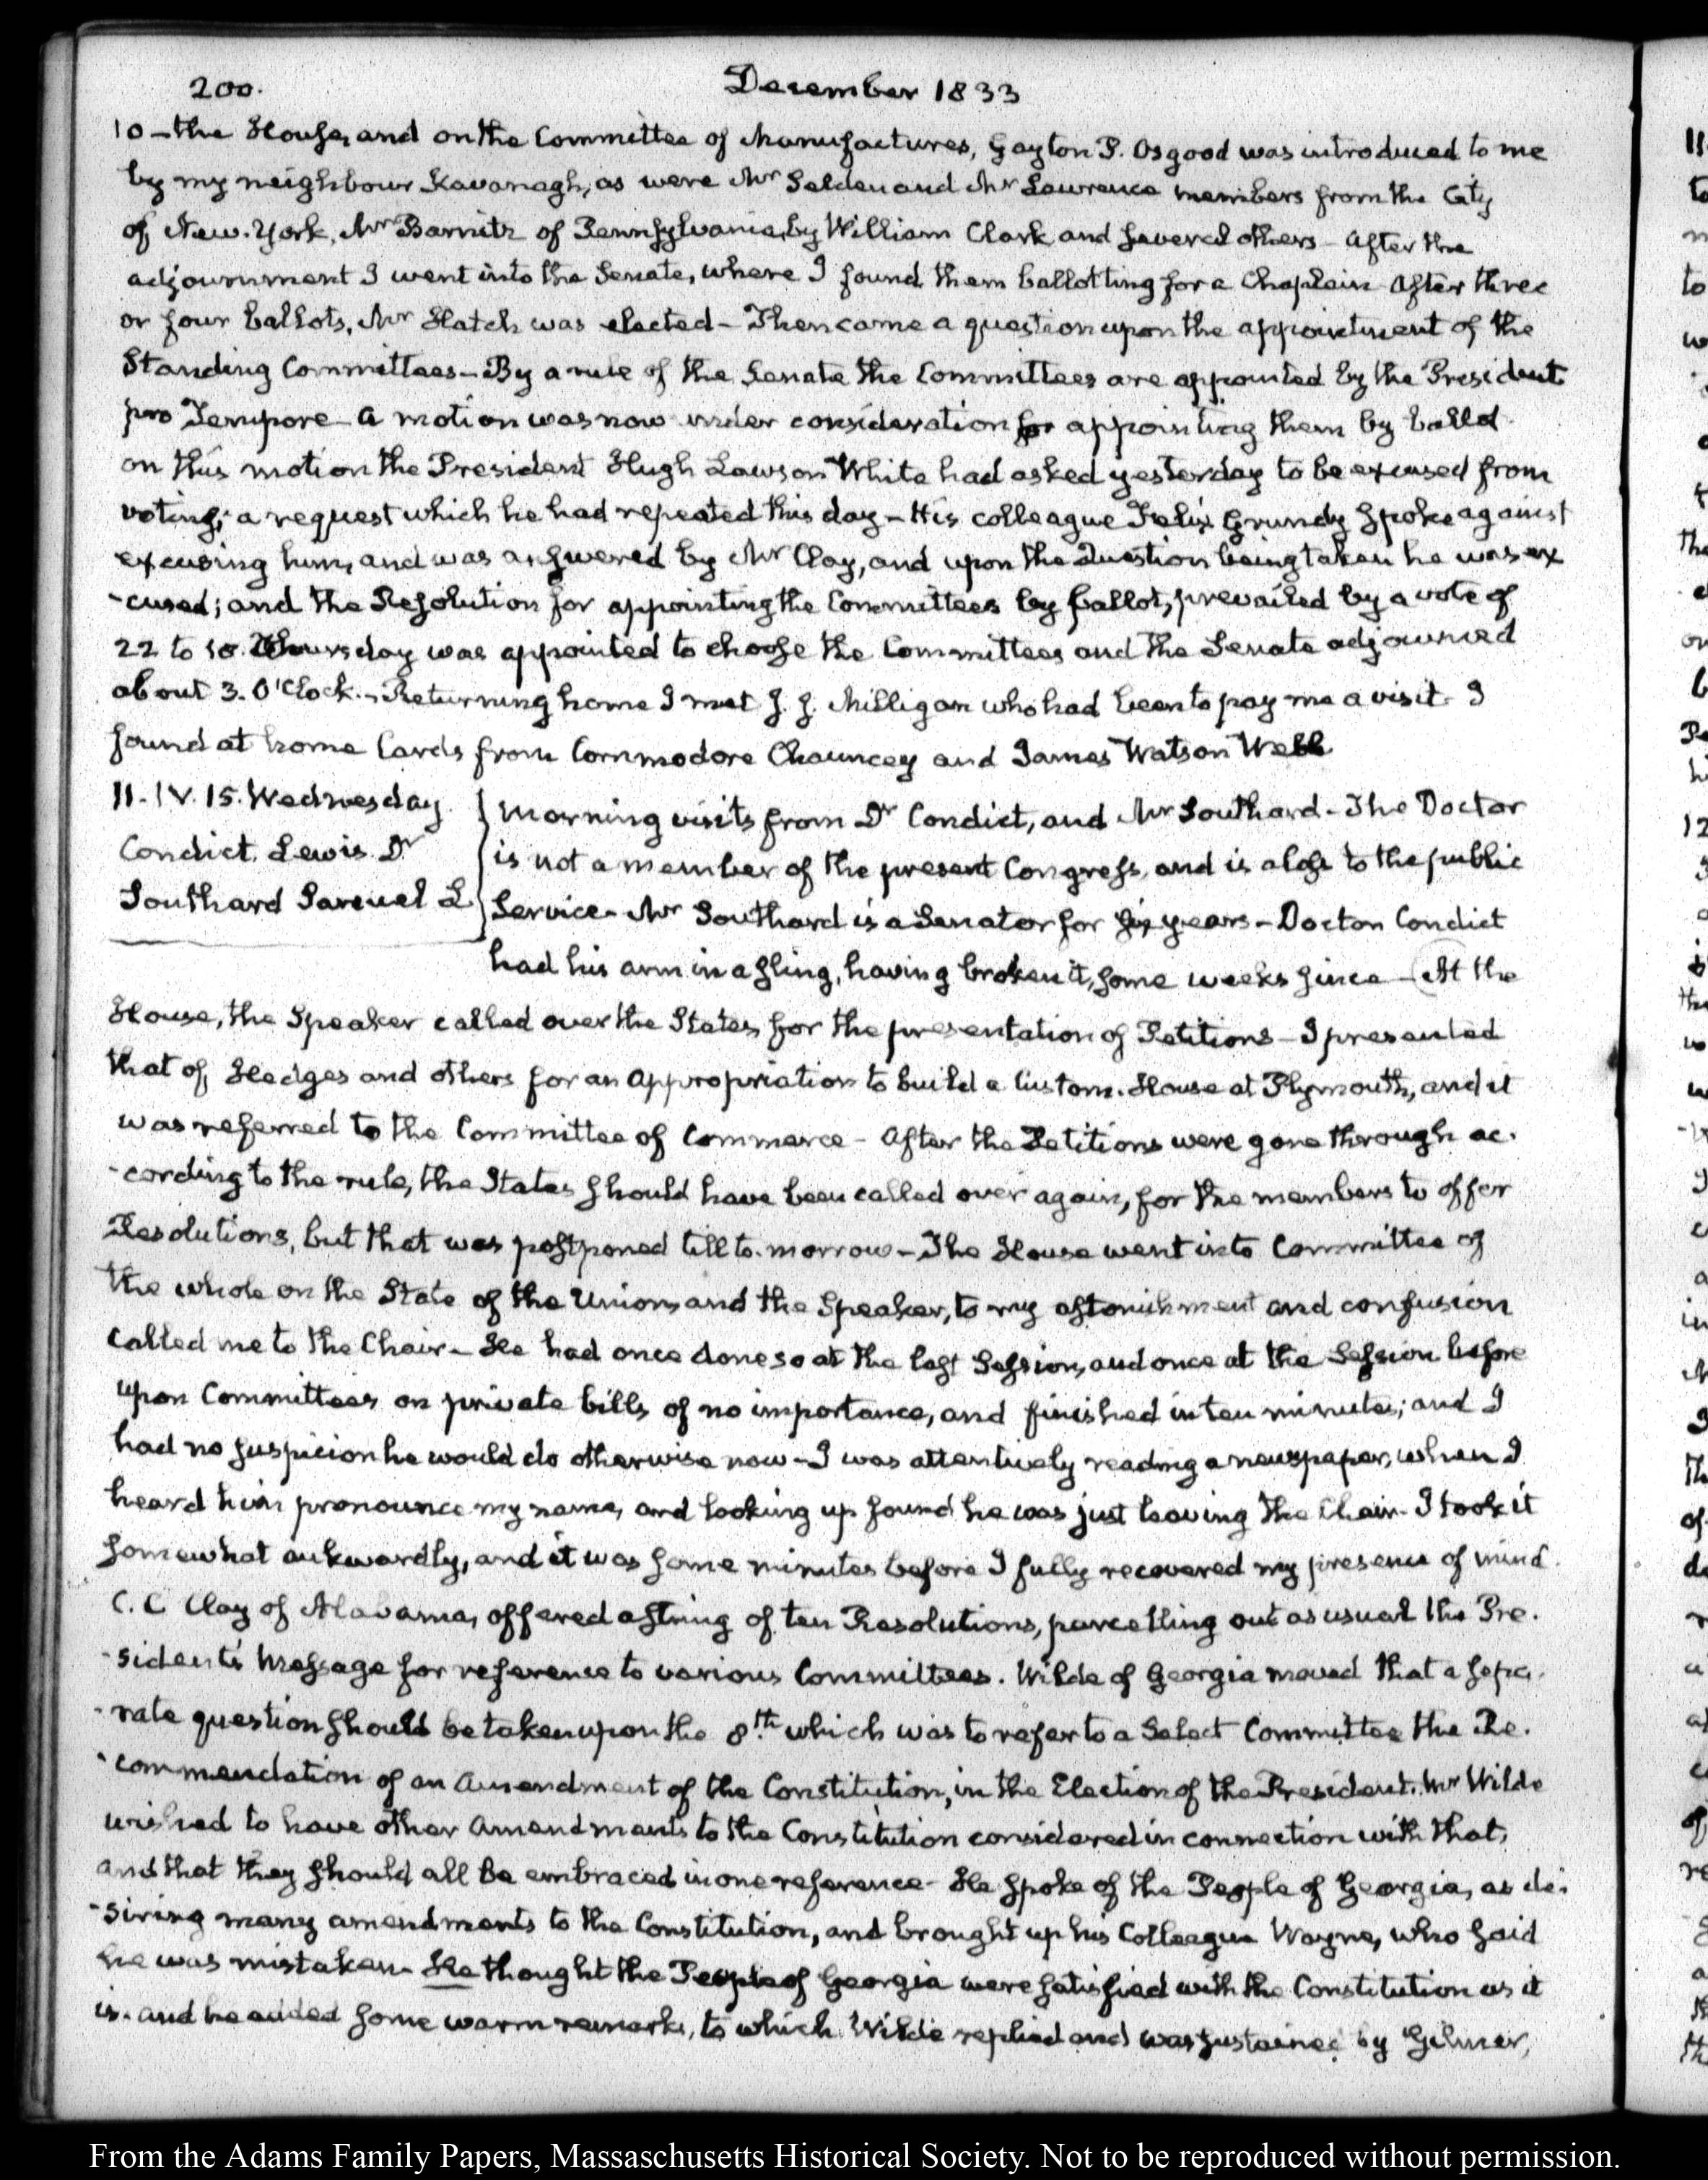 200.
December 1833
10 – the House, and on the Committee of Manufactures, Gayton P. Osgood was introduced to me
by my neighbour Kavanagh, as were Mr Selden and Mr Lawrence members from the City
of New-York, Mr Barnitz of Pennsylvania, by William Clark and several others – After the
adjournment I went into the Senate, where I found them ballotting for a Chaplain – After three
or four ballots, Mr Hatch was elected – Then came a question upon the appointment of the
Standing Committees – By a rule of the Senate the Committees are appointed by the President
pro Tempore – A motion was now under consideration for appointing them by ballot.
on this motion the President Hugh Lawson White had asked yesterday to be excused from
voting; a request which he had repeated this day – His colleague Felix Grundy spoke against
excusing him, and was answered by Mr Clay, and upon the Question being taken he was ex
-cused; and the Resolution for appointing the Committees by ballot, prevailed by a vote of
22 to 18. Thursday was appointed to choose the Committees and the Senate adjourned
about 3. O'Clock. – Returning home I met J. J. Milligan who had been to pay me a visit. I
found at home Cards from Commodore Chauncey and James Watson Webb
11. IV. 15. Wednesday
Condict. Lewis Dr
Southard Samuel L
Morning visits from Dr Condict, and Mr Southard – The Doctor
is not a member of the present Congress, and is a loss to the public
Service – Mr Southard is a Senator for six years – Doctor Condict
had his arm in a sling, having broken it, some weeks since – At the
House, the Speaker called over the States for the presentation of Petitions – I presented
that of, Hedges and others for an Appropriation to build a Custom-House at Plymouth, and it
was referred to the Committee of Commerce – After the Petitions were gone through ac-
-cording to the rule, the States should have been called over again, for the members to offer
Resolutions, but that was postponed till to-morrow – The House went into Committee of
the whole on the State of the Union, and the Speaker, to my astonishment and confusion
called me to the Chair – He had once done so at the last Session, and once at the Session before
upon Committees on private bills of no importance, and finished in ten minutes; and I
had no suspicion he would do otherwise now – I was attentively reading a newspaper, when I
heard him pronounce my name, and looking up found he was just leaving the Chair – I took it
somewhat aukwardly, and it was some minutes before I fully recovered my presence of mind.
C. C Clay of Alabama, offered a string of ten Resolutions, parcelling out as usual the Pre-
-sident's Message for reference to various Committees. Wilde of Georgia moved that a sepa-
-rate question should be taken upon the 8th. which was to refer to a Select Committee the Re-
-commendation of an Amendment of the Constitution, in the Election of the President. Mr Wilde
wished to have other Amendments to the Constitution considered in connection with that,
and that they should all be embraced in one reference – He spoke of the People of Georgia, as de-
-siring many amendments to the Constitution, and brought up his Colleague Wayne, who said
he was mistaken – He thought the People of Georgia were satisfied with the Constitution as it
is. and he added some warm remarks, to which Wilde replied and was sustained by Gilmer,
From the Adams Family Papers, Massachusetts Historical Society. Not to be reproduced without permission.